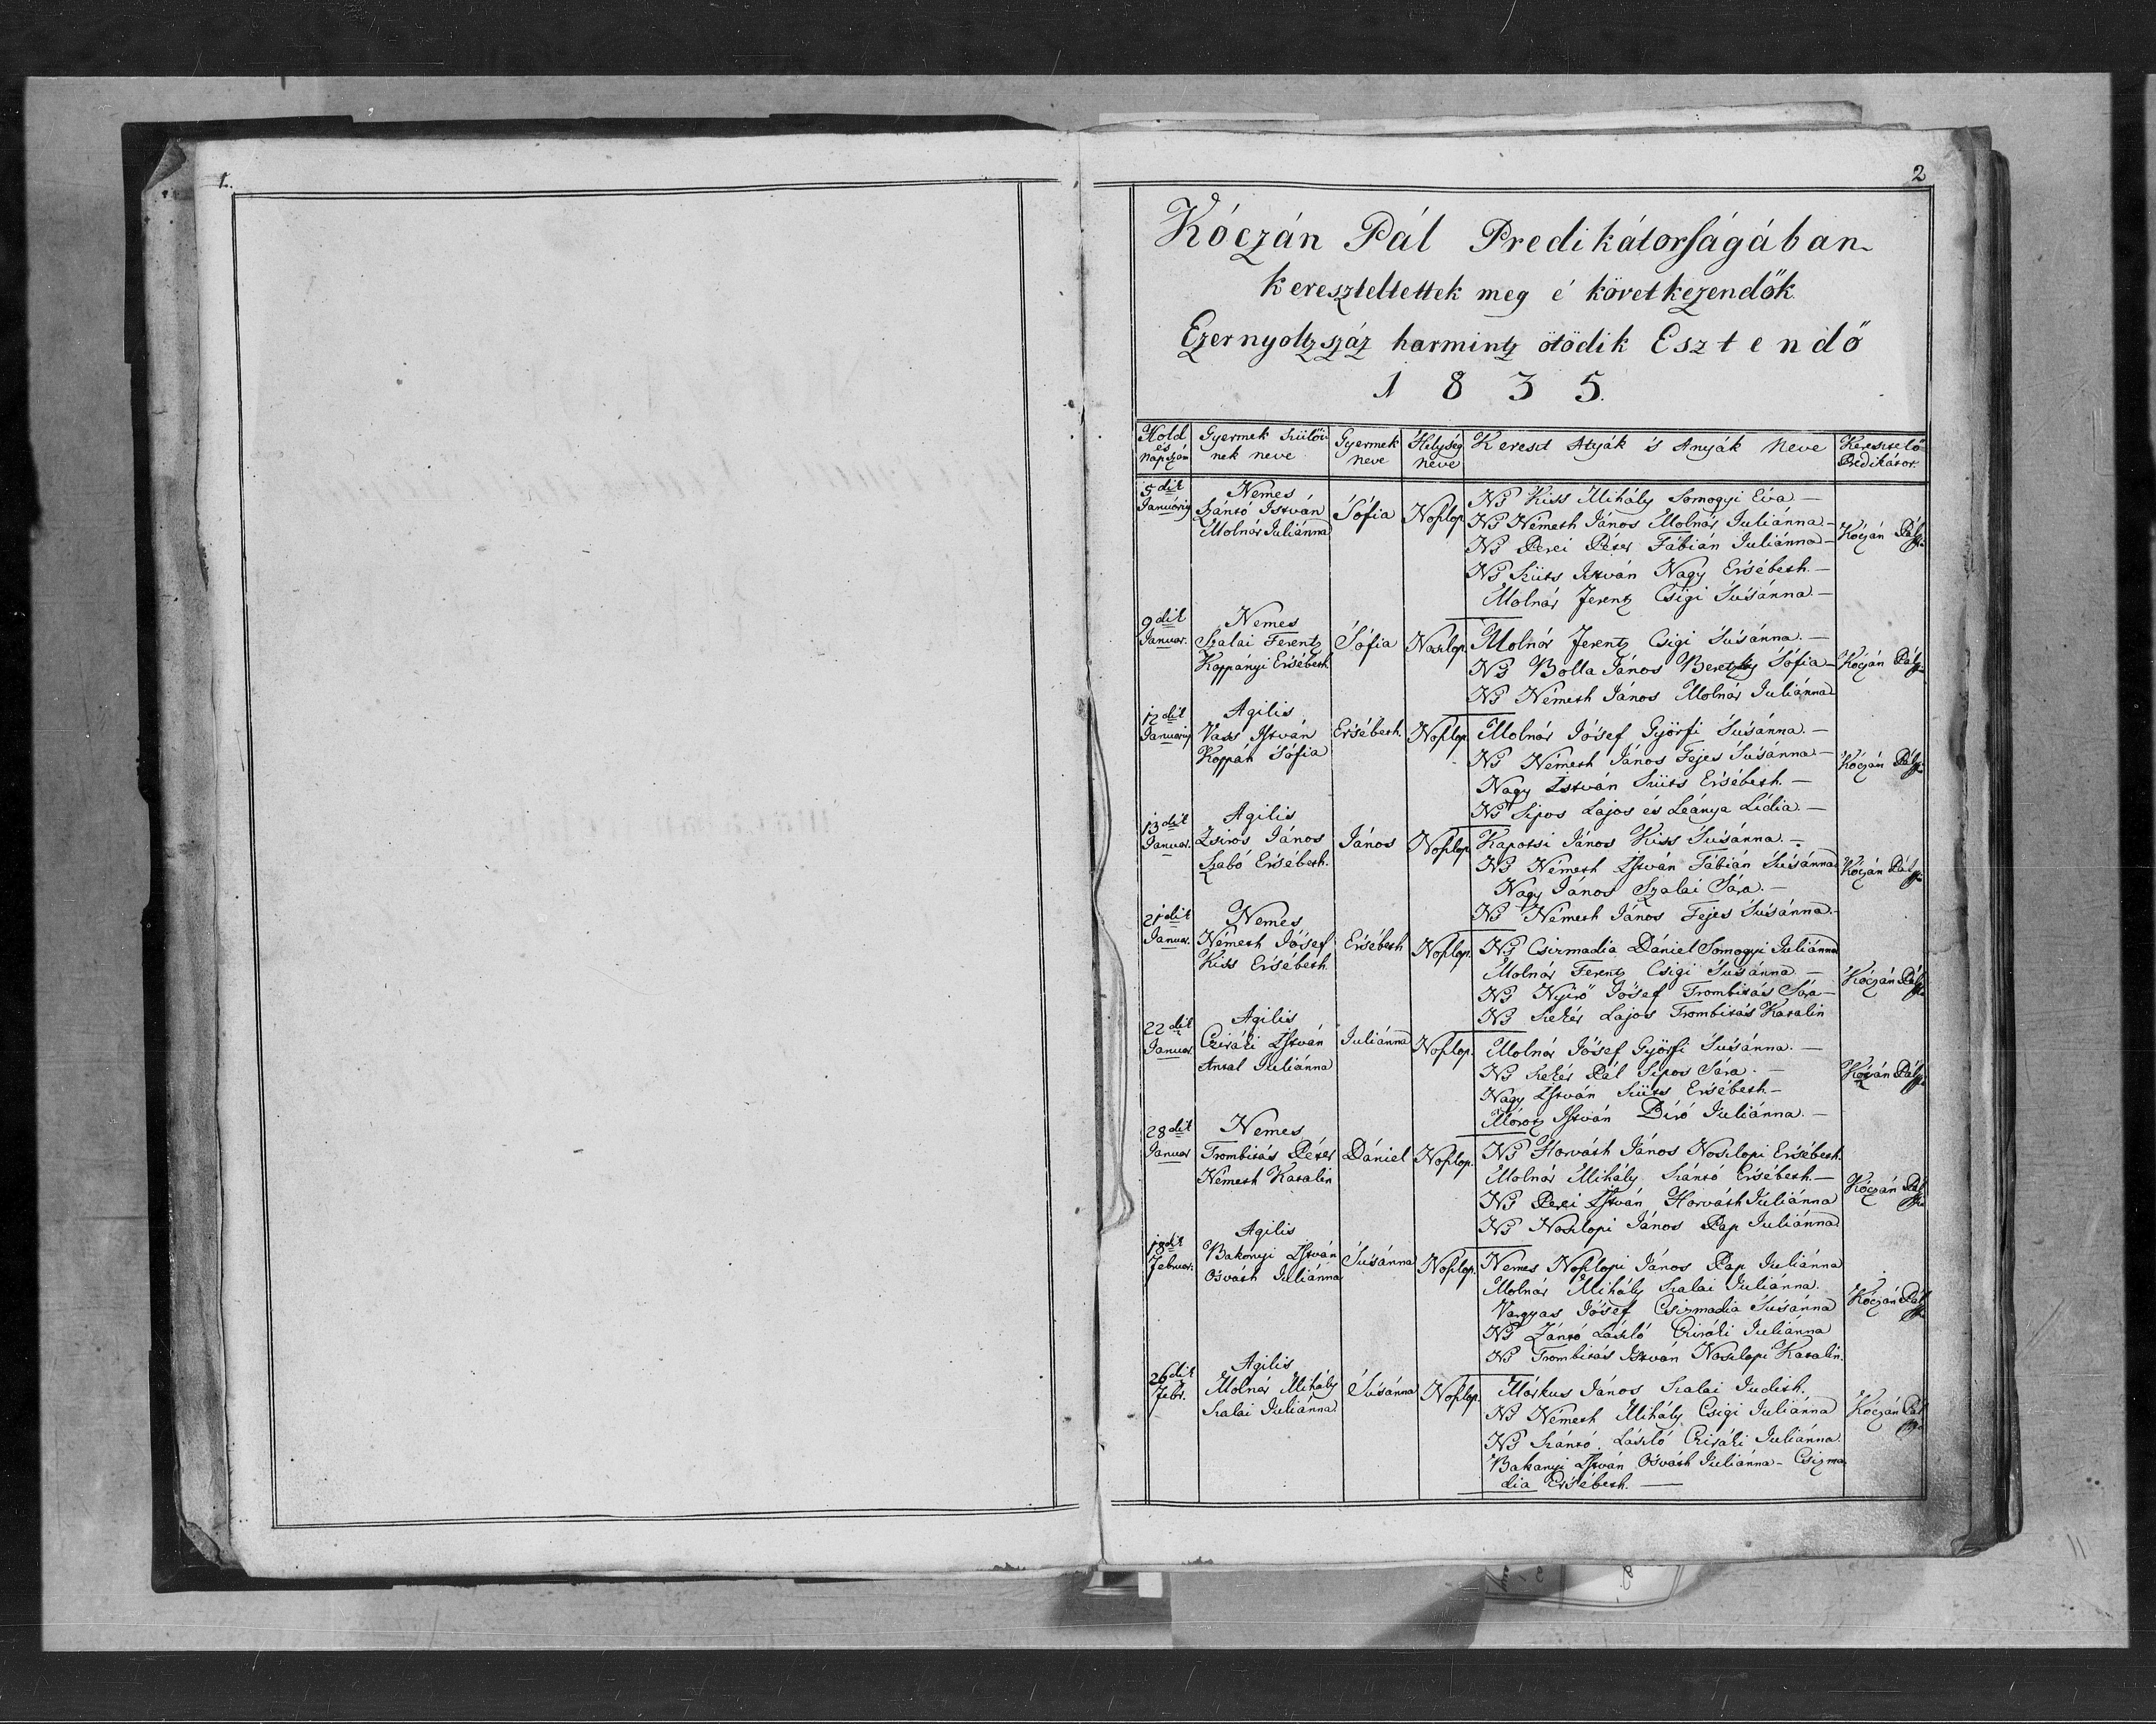 1.
2
Kóczán Pál Predikátorságában
kereszteltettek meg é következendők
Ezernyoltzszáz harmintz ötödik Esztendő
1 8 3 5.
Hold és Napszám
Gyermek szülőinek neve
Gyermek neve
Helység neve
Kereszt Atyák és Anyák Neve
Keresztelő Predikátor.
5dik Januárij
Nemes
Szántó István
Molnár Juliánna
Sófia
Noszlop
Ns Kiss Mihály Somogyi Éva —
Ns Németh János Molnár Juliánna —
Ns Perei Péter Fábián Juliánna —
Ns Szüts István Nagy Ersébeth. —
Molnár Ferentz Csigi Susánna. —
Kóczán Pál
9dik Januar.
Nemes
Szalai Ferentz
Koppányi Ersébeth
Sófia
Noszlop.
Molnár Ferentz Csigi Susánna. —
Ns Bolla János Beretzky Sófia —
Ns Németh János Molnár Juliánna
Kóczán Pál
12dik Januárij
Agilis
Vass István
Koppán Sófia
Ersébeth.
Noszlop
Molnár Jósef Györfi Susánna. —
Ns Németh János Fejes Susánna —
Nagy István Szüts Ersébeth. —
Ns Sipos Lajos és Leánya Lidia. —
Kóczán Pál
13dik Januar.
Agilis
Zsiros János
Szabó Ersébeth.
János
Noszlop
Kapotsi János Kiss Susánna. —
Ns Németh István Fábián Susánna
Nagy János Szalai Sára. —
Ns Németh János Fejes Susánna. —
Kóczán Pál
21dik Januar.
Nemes
Németh Jósef
Kiss Ersébeth
Ersébeth
Noszlop.
Ns Csizmadia Dániel Somogyi Juliánna
Molnár Ferentz Csigi Susánna —
Ns Nyirő Jósef Trombitás Sára —
Ns Szekér Lajos Trombitás Katalin
Kóczán Pál
22dik Januar
Agilis
Cziráki István
Antal Juliánna
Juliánna
Noszlop.
Molnár Jósef Györfi Susánna. —
Ns Szekér Pál Sipos Sára. —
Nagy István Szüts Ersébeth. —
Mórotz István Bíró Juliánna. —
Kóczán Pál
28dik Januar
Nemes
Trombitás Péter
Németh Katalin
Dániel
Noszlop.
Ns Horváth János Noszlopi Ersébeth.
Molnár Mihály Szántó Ersébeth. —
Ns Perei István Horváth Juliánna
Ns Noszlopi János Pap Juliánna
Kóczán Pál
18dik Februar.
Agilis
Bakonyi István
Osváth Juliánna
Susánna
Noszlop.
Nemes Noszlopi János Pap Juliánna
Molnár Mihály Szalai Juliánna.
Vargyas Jósef Csizmadia Susánna
Ns Zántó László Cziráki Juliánna
Ns Trombitás István Noszlopi Katalin.
Kóczán Pál
26dik Febr.
Agilis
Molnár Mihály
Szalai Juliánna
Susánna
Noszlop.
Márkus János Szalai Judith.
Ns Németh Mihály Csigi Juliánna
Ns Szántó László Cziráki Juliánna.
Bakanyi István Osváth Juliánna — Csizma
dia Ersébeth. —
Kóczán Pál